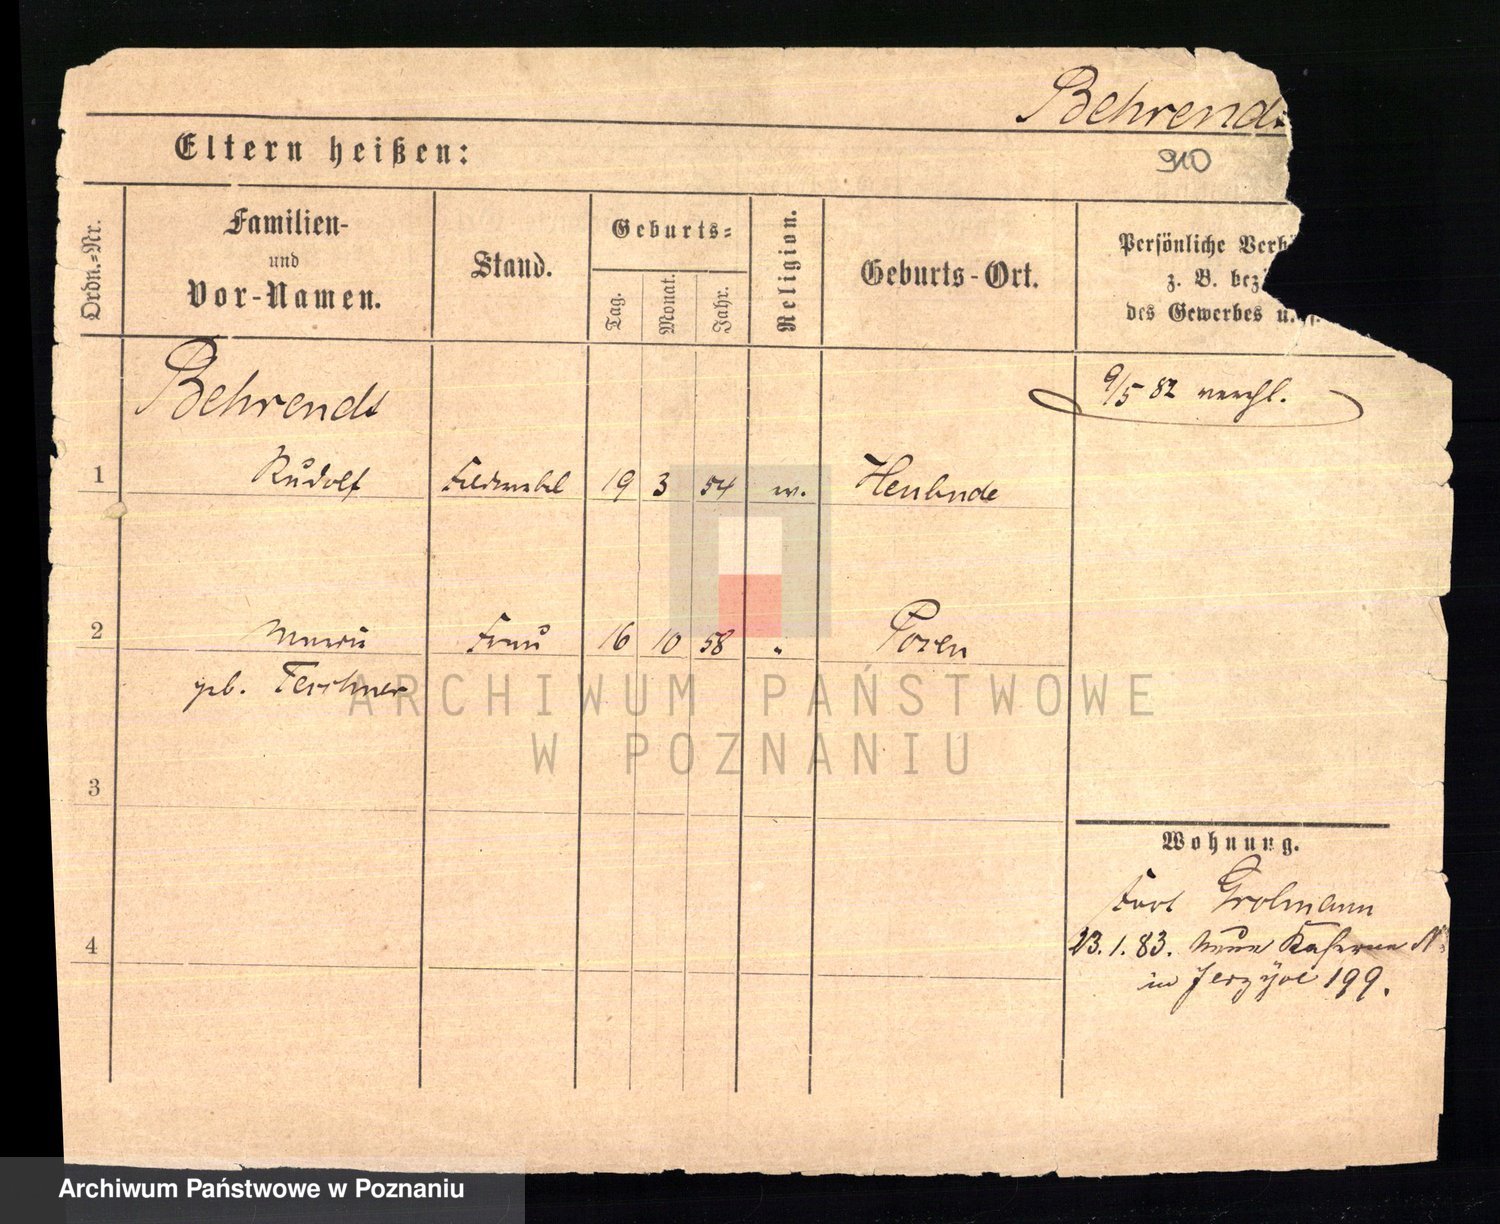 Behrendt
910
Eltern heißen:
Ordn.-Nr.
Familien-
und
Vor-Namen.
Stand.
Geburts-
Tag.
Monat.
Jahr.
Religion.
Geburts-Ort.
Persönliche
z. B.
des Gewerbes
Behrendt
9/5 82 verehl.
1 Rudolf Feldwebel 19 3 54 ev. Heubude
2 Marie Frau 16 10 58 " Posen
geb.
3
4
Wohnung.
Fort Grolmann
23.1.83. Neue Kaserne
in 199.
ARCHIWUM PAŃSTWOWE
W POZNANIU
Archiwum Państwowe w Poznaniu